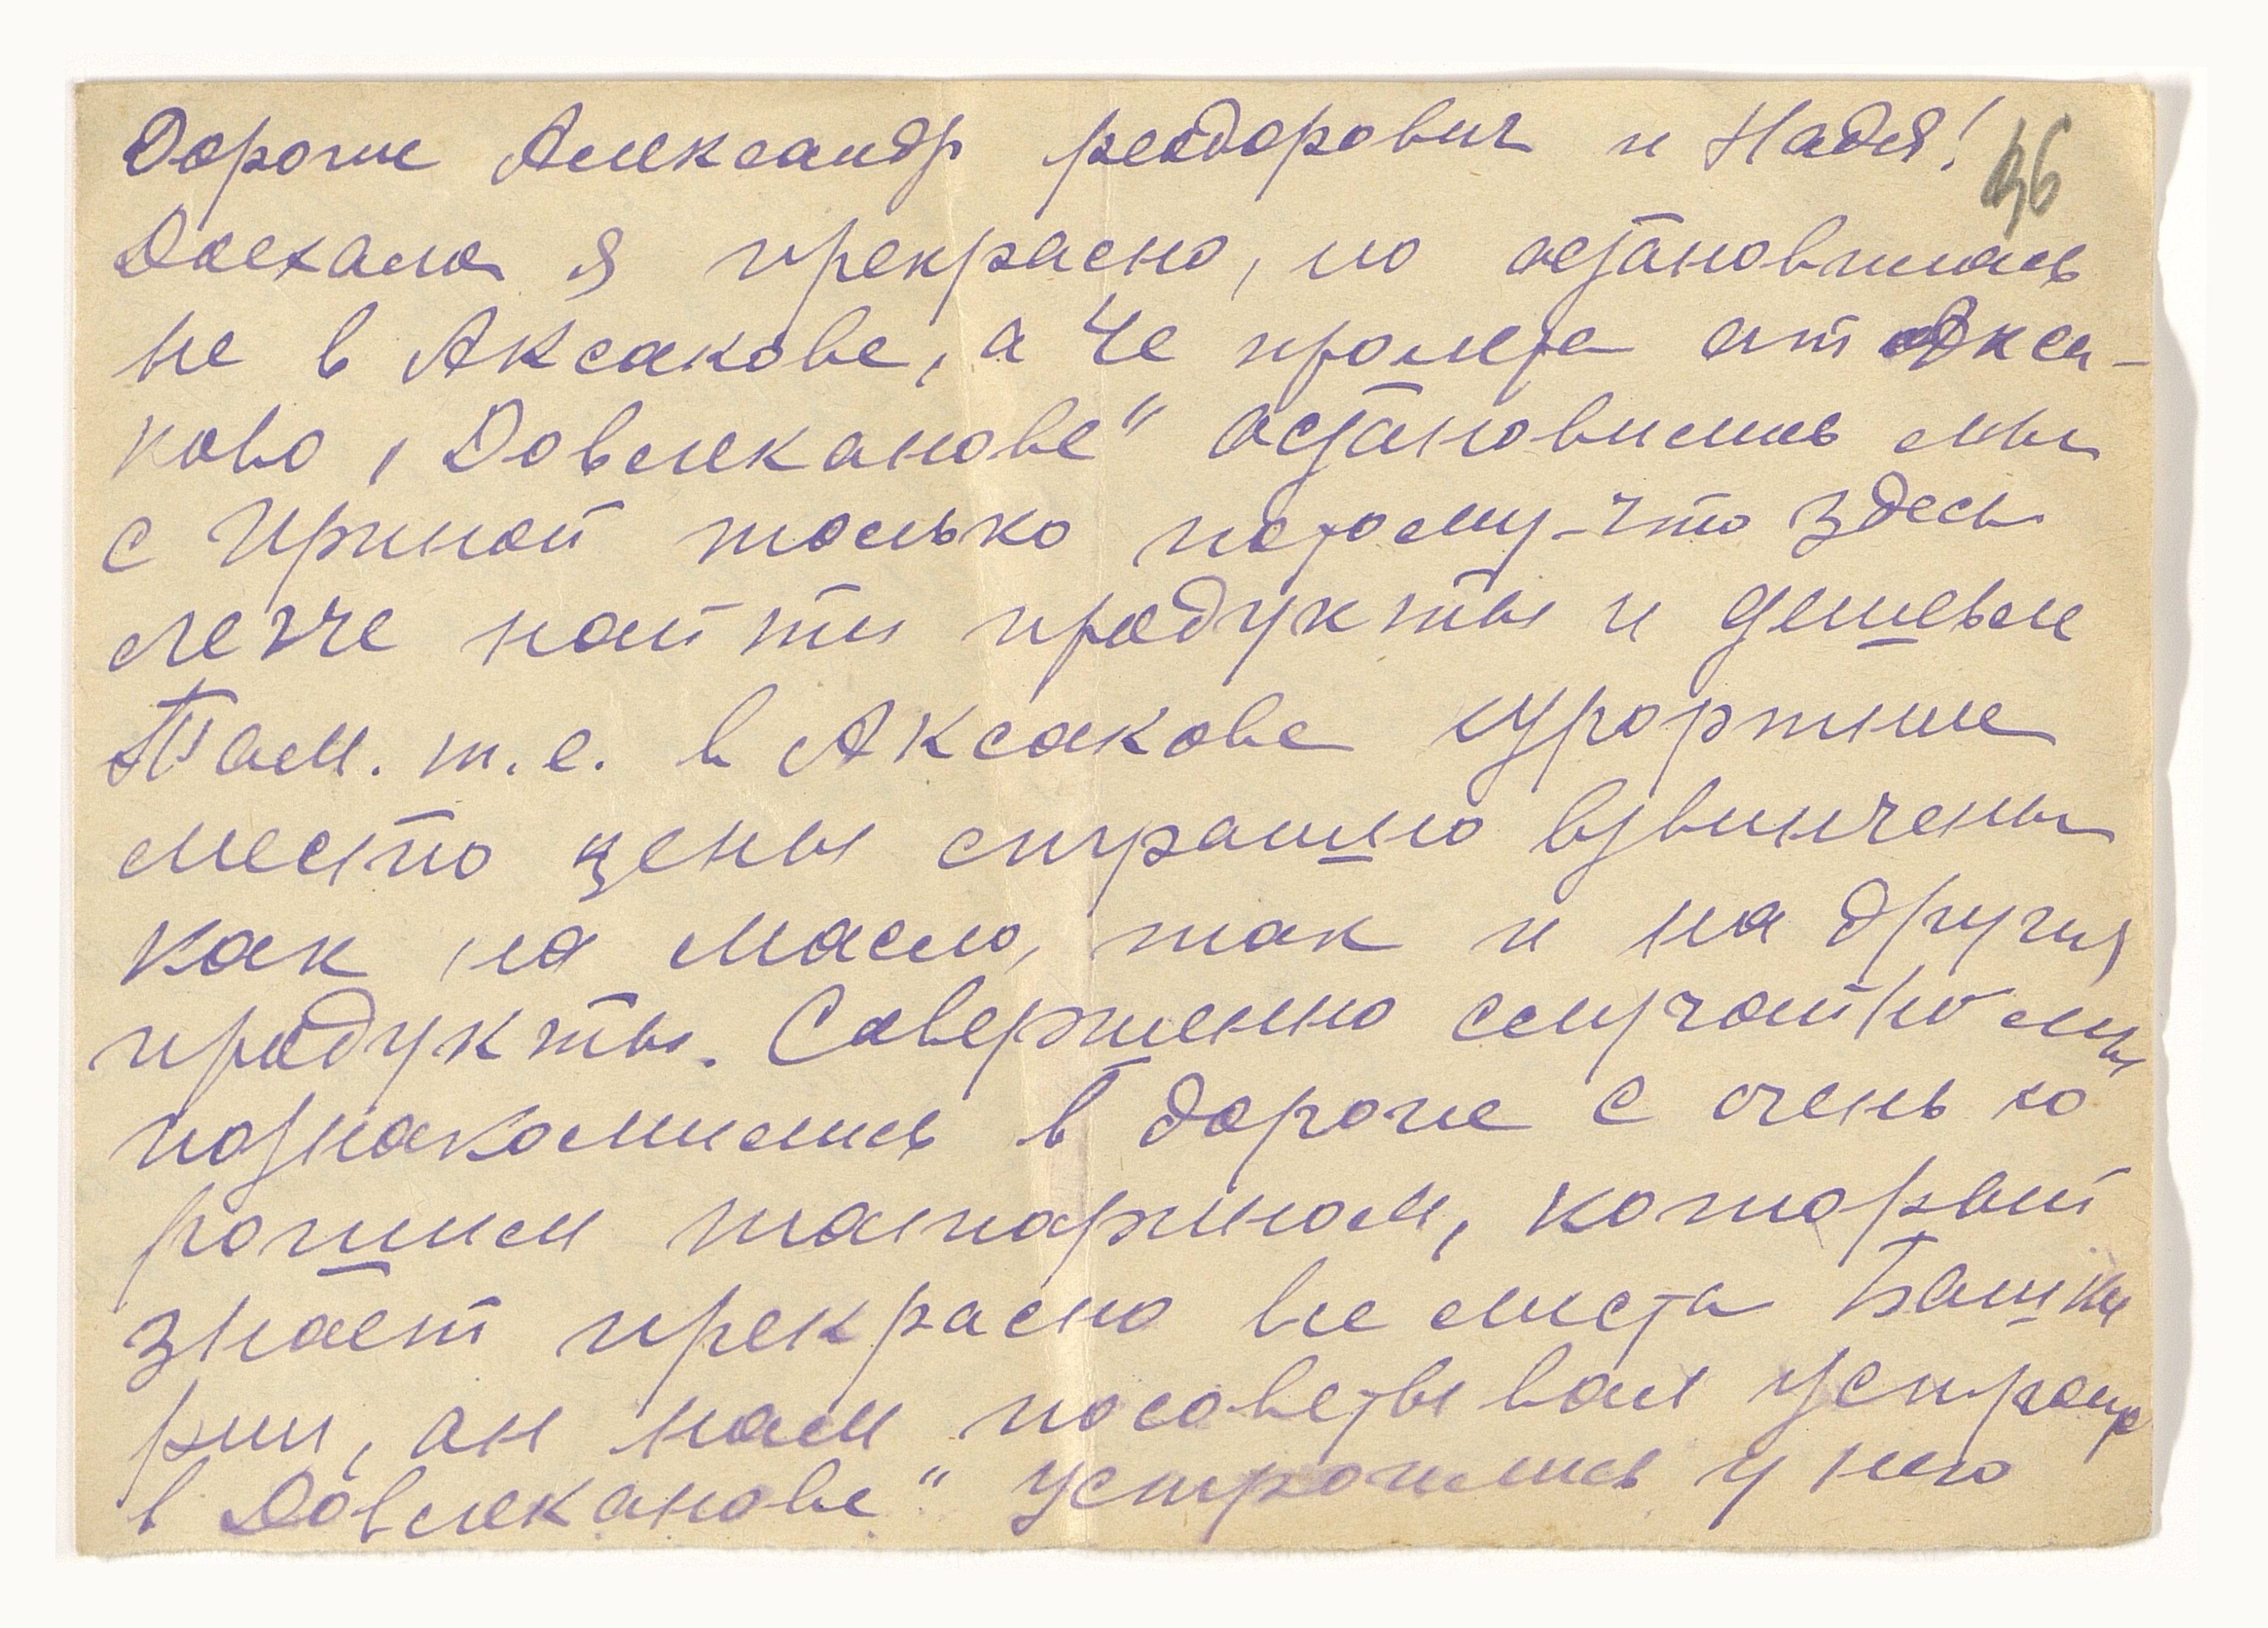 Дорогие Александр Феодорович и Надя!
36
Доехала я прекрасно, но остановилась
не в Аксакове, а не от Акса-
ково, Довлеканове" остановились мы
с Ириной только потому-что здесь
легче найти продукты и дешевле
Там. т.е. в Аксакове курортное
место цены страшно взвинчены
как на масло, так и на другия
продукты. Совершенно случайно мы
познакомились в дороге с очень хо
рошим татарином, который
знает прекрасно все места Башки
рии, он нам посоветывал
в Довлеканове" устроились у него